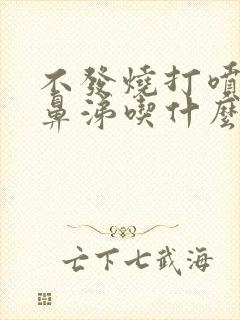 不發燒打噴
鼻涕喫什麼
亡下七武海